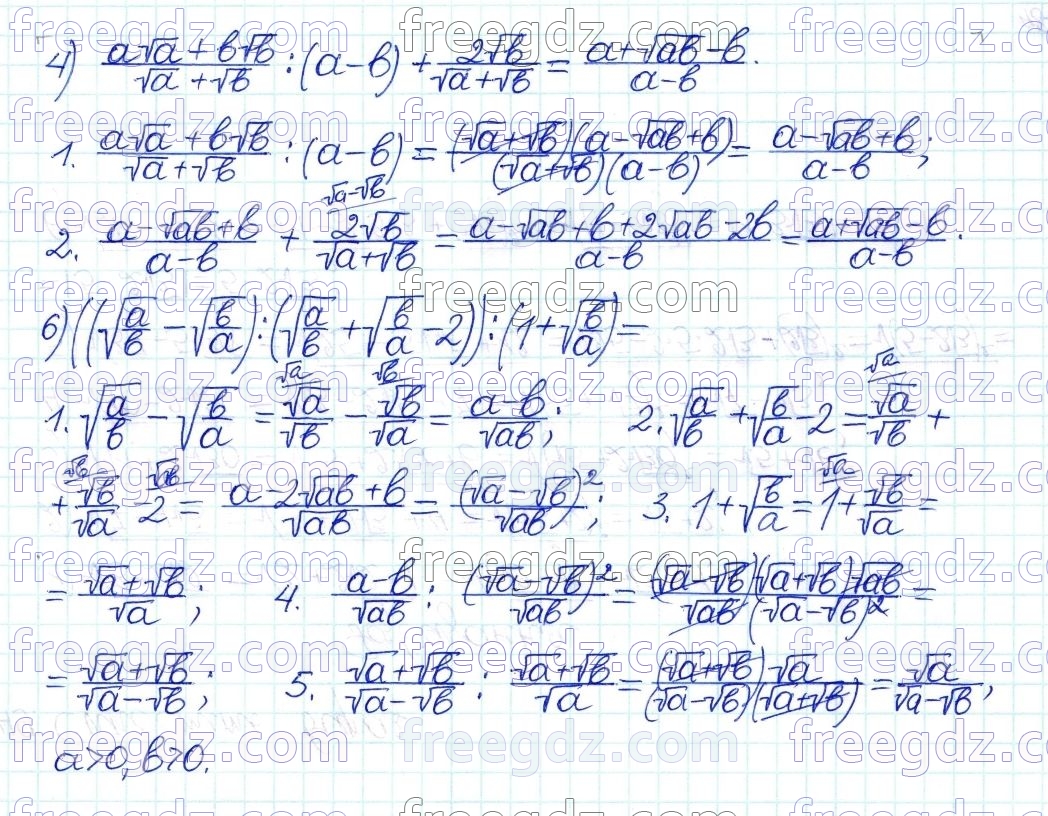 4) (a√a + b√b)/(√a + √b) : (a − b) + 2√b/(√a + √b) = (a + √ab − b)/(a − b).
1. (a√a + b√b)/(√a + √b) : (a − b) = (√a + √b)(a − √ab + b)/((√a + √b)(a − b)) = (a − √ab + b)/(a − b);
2. (a − √ab + b)/(a − b) + 2√b/(√a + √b) ^(√a − √b) = (a − √ab + b + 2√ab − 2b)/(a − b) = (a + √ab − b)/(a − b).
6) ((√(a/b) − √(b/a)) : (√(a/b) + √(b/a) − 2)) : (1 + √(b/a)) =
1. √(a/b) − √(b/a) = √a/√b ^(√a) − √b/√a ^(√b) = (a − b)/√ab; 2. √(a/b) + √(b/a) − 2 = √a/√b ^(√a) +
+ √b/√a ^(√b) − 2 ^(√ab) = (a − 2√ab + b)/√ab = (√a − √b)²/√ab; 3. 1 + √(b/a) = 1 ^(√a) + √b/√a =
= (√a + √b)/√a; 4. (a − b)/√ab : (√a − √b)²/√ab = (√a − √b)(√a + √b)√ab/(√ab(√a − √b)²) =
= (√a + √b)/(√a − √b); 5. (√a + √b)/(√a − √b) : (√a + √b)/√a = (√a + √b)√a/((√a − √b)(√a + √b)) = √a/(√a − √b),
a>0, b>0.
freegdz.com